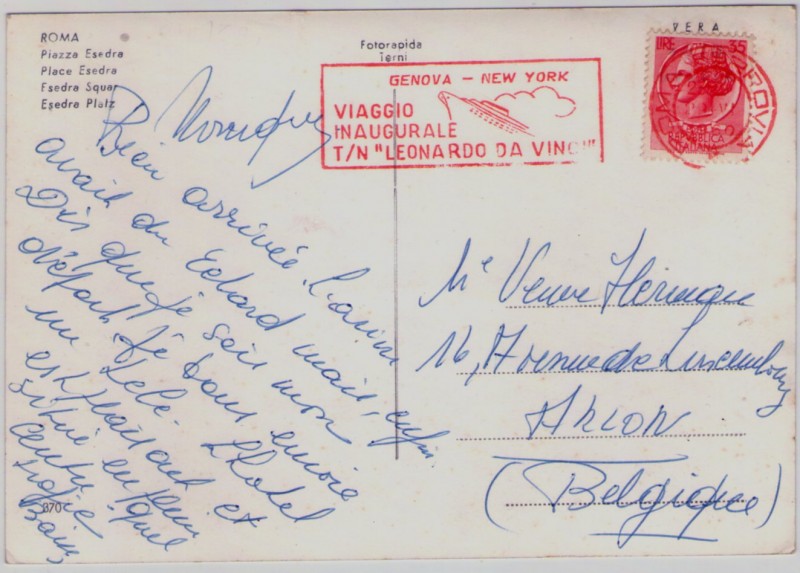 ROMA
Piazza Esedra
Place Esedra
Esedra Squar
Esedra Platz
Fotorapida
Terni
VERA
GENOVA - NEW YORK
VIAGGIO
INAUGURALE
T/N "LEONARDO DA VINCI"
LIRE 35
REPVBBLICA
ITALIANA
FERROVIA
Bien arrivée. L'avion
avait du retard mais, enfin
Dès que je sais mon
départ je vous envoie
un télé. L'hotel
est et
située en plein
centre
Baisers
Me Veuve Herman
16, Avenue de Luxembourg
Arlon
(Belgique)
370